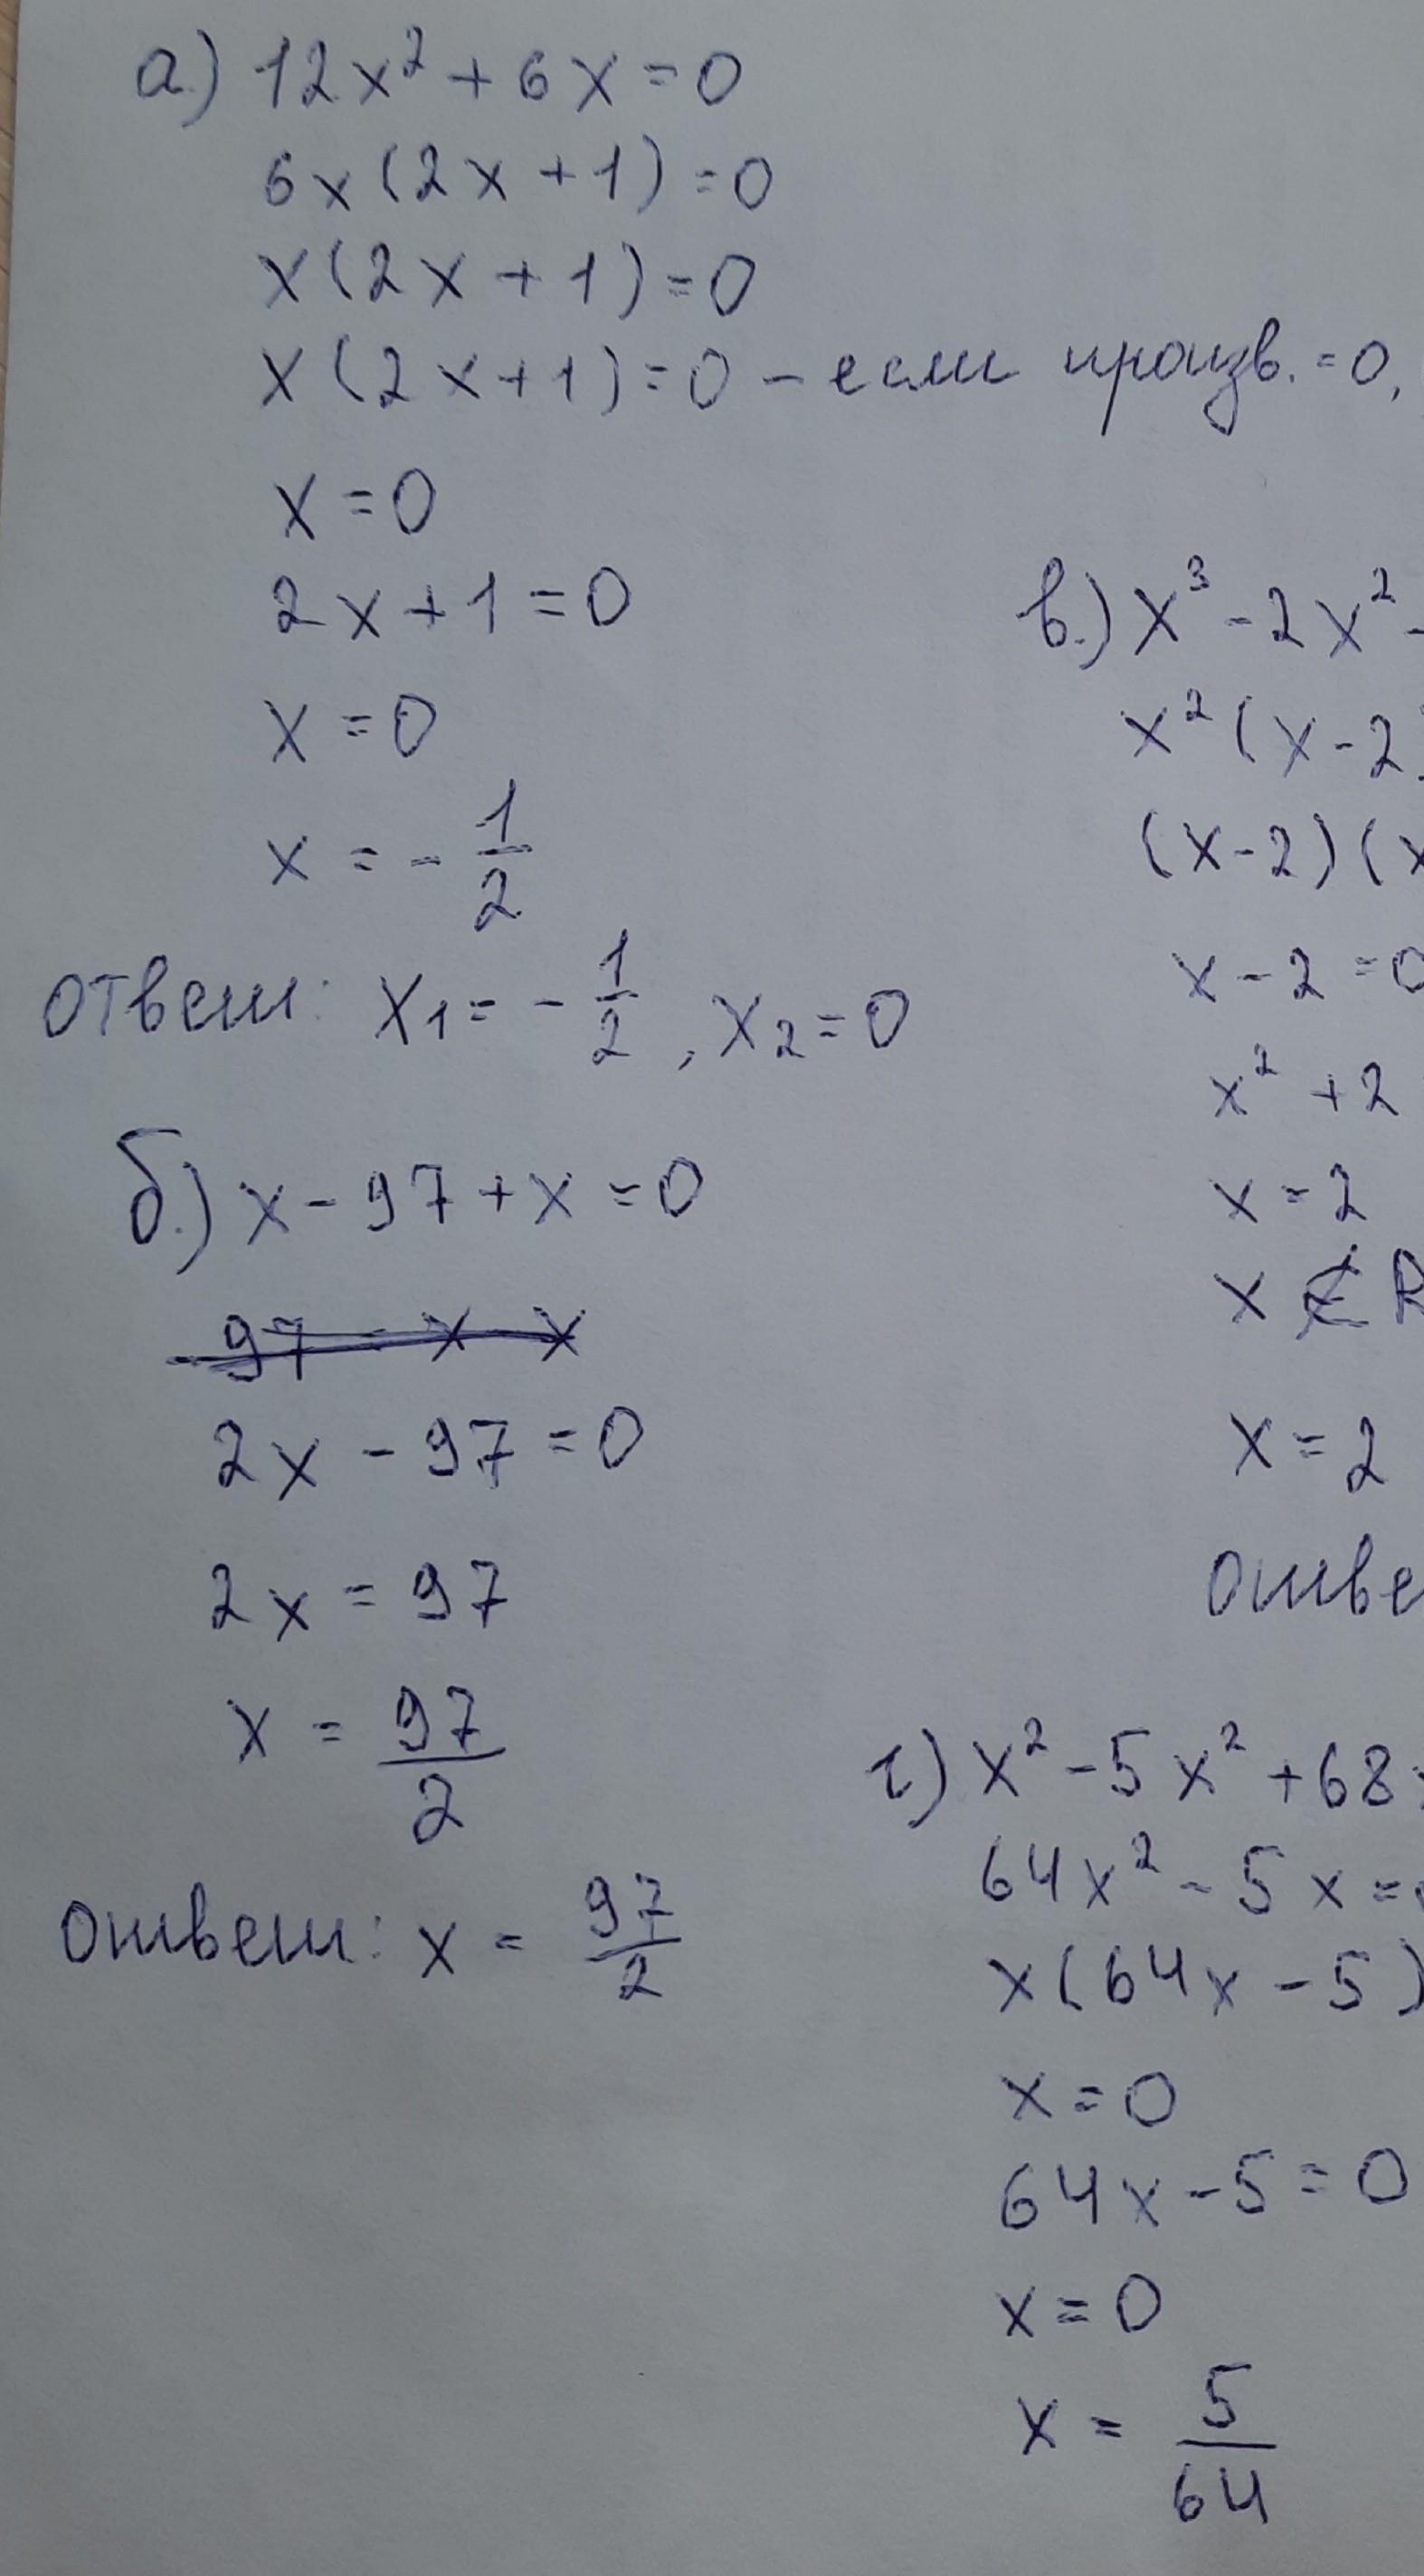 а.) 12x² + 6x = 0
6x(2x + 1) = 0
x(2x + 1) = 0
x(2x + 1) = 0 - если произв. = 0,
x = 0
2x + 1 = 0
x = 0
x = - 1/2
ответ: x₁ = - 1/2, x₂ = 0
б.) x - 97 + x = 0
2x - 97 = 0
2x = 97
x = 97/2
ответ: x = 97/2
в.) x³ - 2x² -
x²(x - 2
(x - 2)(x
x - 2 = 0
x² + 2
x = 2
x ∉ R
x = 2
отве
г) x² - 5x² + 68
64x² - 5x =
x(64x - 5)
x = 0
64x - 5 = 0
x = 0
x = 5/64